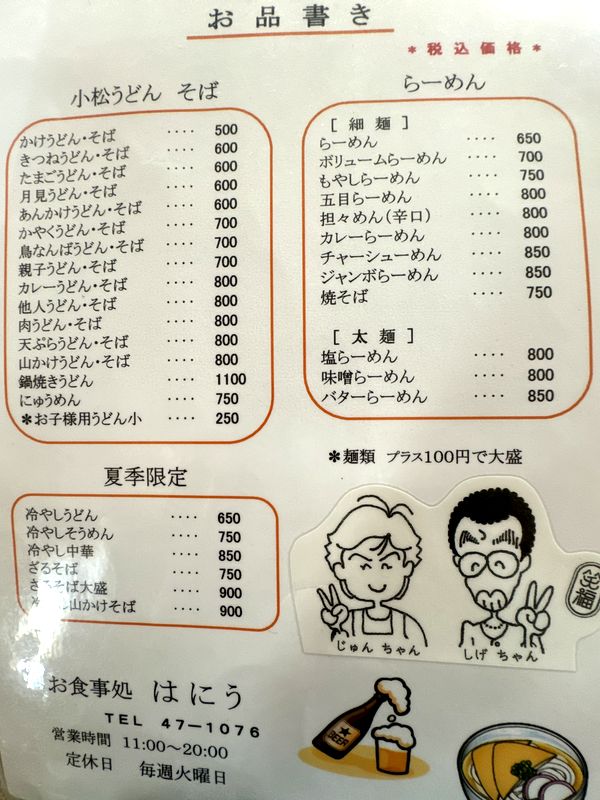 お品書き
*税込価格*
小松うどん そば
かけうどん・そば ‥‥ 500
きつねうどん・そば ‥‥ 600
たまごうどん・そば ‥‥ 600
月見うどん・そば ‥‥ 600
あんかけうどん・そば ‥‥ 600
かやくうどん・そば ‥‥ 700
鳥なんばうどん・そば ‥‥ 700
親子うどん・そば ‥‥ 700
カレーうどん・そば ‥‥ 800
他人うどん・そば ‥‥ 800
肉うどん・そば ‥‥ 800
天ぷらうどん・そば ‥‥ 800
山かけうどん・そば ‥‥ 800
鍋焼きうどん ‥‥ 1100
にゅうめん ‥‥ 750
*お子様用うどん小 ‥‥ 250
らーめん
[細麺]
らーめん ‥‥ 650
ボリュームらーめん ‥‥ 700
もやしらーめん ‥‥ 750
五目らーめん ‥‥ 800
担々めん(辛口) ‥‥ 800
カレーらーめん ‥‥ 800
チャーシューめん ‥‥ 850
ジャンボらーめん ‥‥ 850
焼そば ‥‥ 750
[太麺]
塩らーめん ‥‥ 800
味噌らーめん ‥‥ 800
バターらーめん ‥‥ 850
*麺類 プラス100円で大盛
夏季限定
冷やしうどん ‥‥ 650
冷やしそうめん ‥‥ 750
冷やし中華 ‥‥ 850
ざるそば ‥‥ 750
ざるそば大盛 ‥‥ 900
冷やし山かけそば ‥‥ 900
じゅんちゃん
しげちゃん
お食事処 はにう
TEL 47-1076
営業時間 11:00〜20:00
定休日 毎週火曜日
BEER